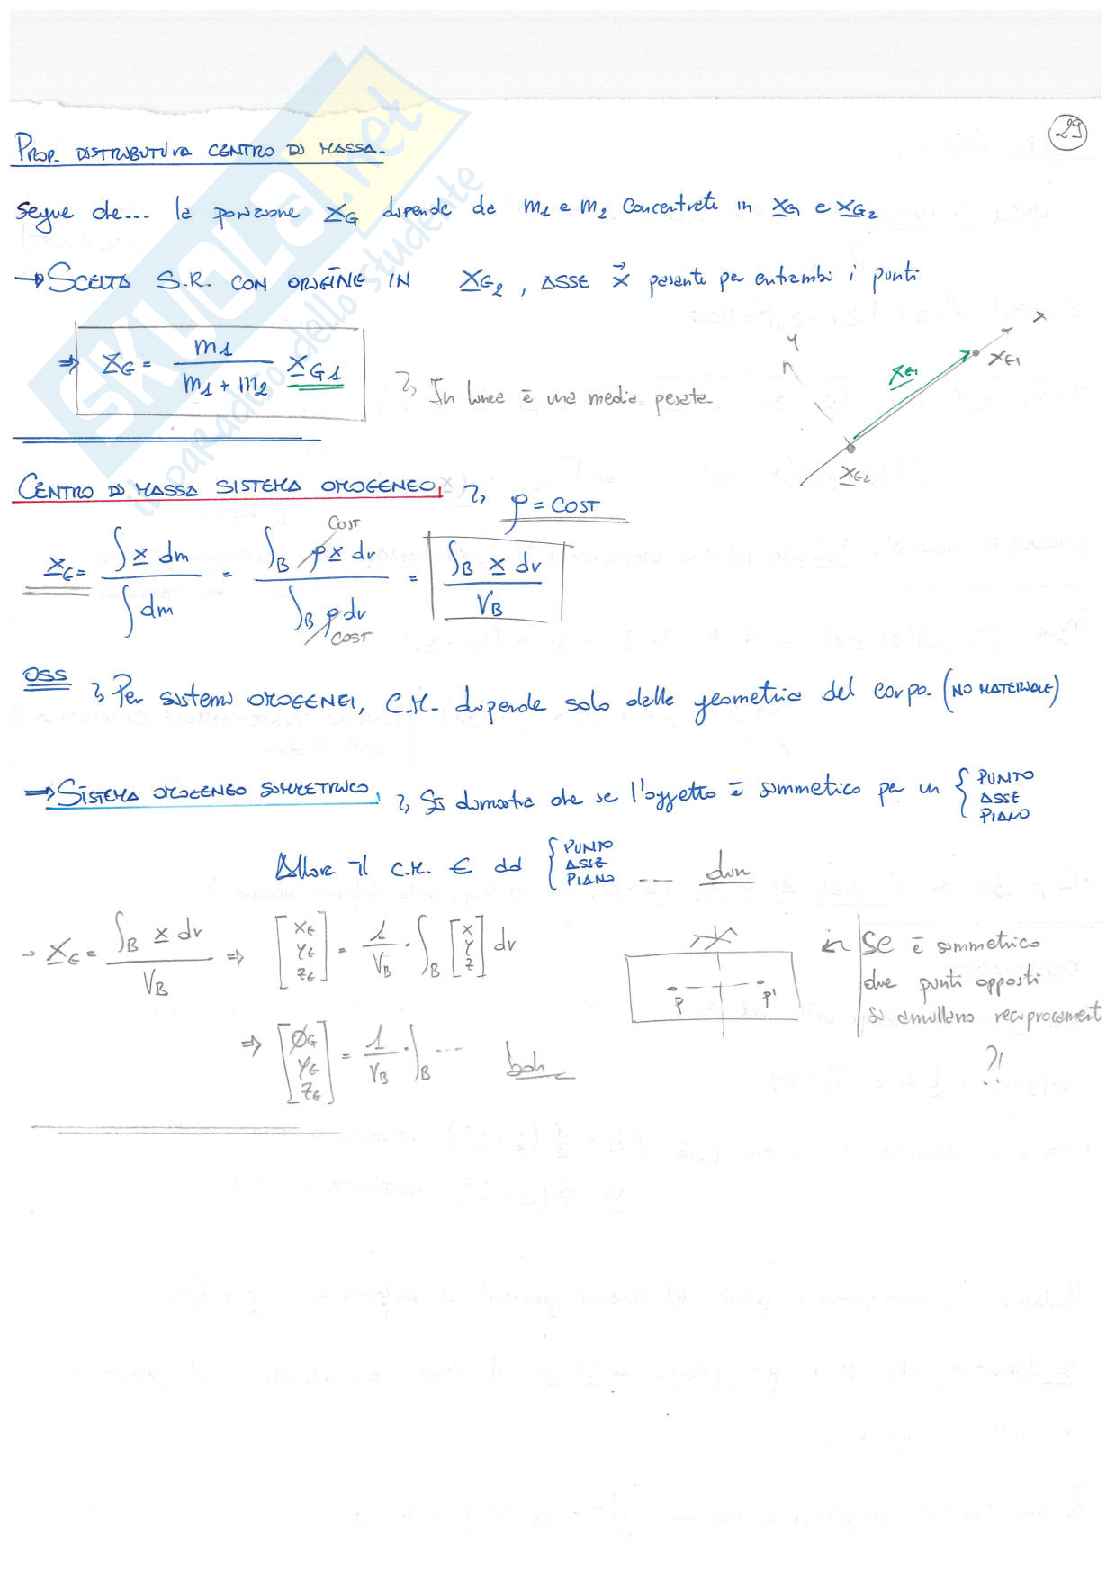 29
PROP. DISTRIBUTIVA CENTRO DI MASSA.
segue da... la posizione X_G dipende da m1 e m2 concentrati in X_G1 e X_G2
→ SCELTA S.R. CON ORIGINE IN X_G2, ASSE x passante per entrambi i punti
⇒ X_G = m1 / (m1 + m2) X_G1
In linea è una media pesata
y
x
X_G1
X_G1
X_G2
CENTRO DI MASSA SISTEMA OMOGENEO, ρ = COST
X_G = ∫ x dm / ∫ dm = ∫_B ρ x dv / ∫_B ρ dv = ∫_B x dv / V_B
COST
COST
OSS
Per sistemi OMOGENEI, C.M. dipende solo dalla geometria del corpo. (NO MATERIALE)
→ SISTEMA OMOGENEO SIMMETRICO, Si dimostra che se l'oggetto è simmetico per un { PUNTO
ASSE
PIANO
Allora il C.M. ∈ ad { PUNTO
ASSE
PIANO ... dim
→ X_G = ∫_B x dv / V_B ⇒ [x_G y_G z_G] = 1/V_B · ∫_B [x y z] dv
⇒ [Ø_G y_G z_G] = 1/V_B · ∫_B ... boh
P P'
SE è simmetrico
due punti opposti
si annullano reciprocament
?!
SKUOLA.net
il paradiso dello studente